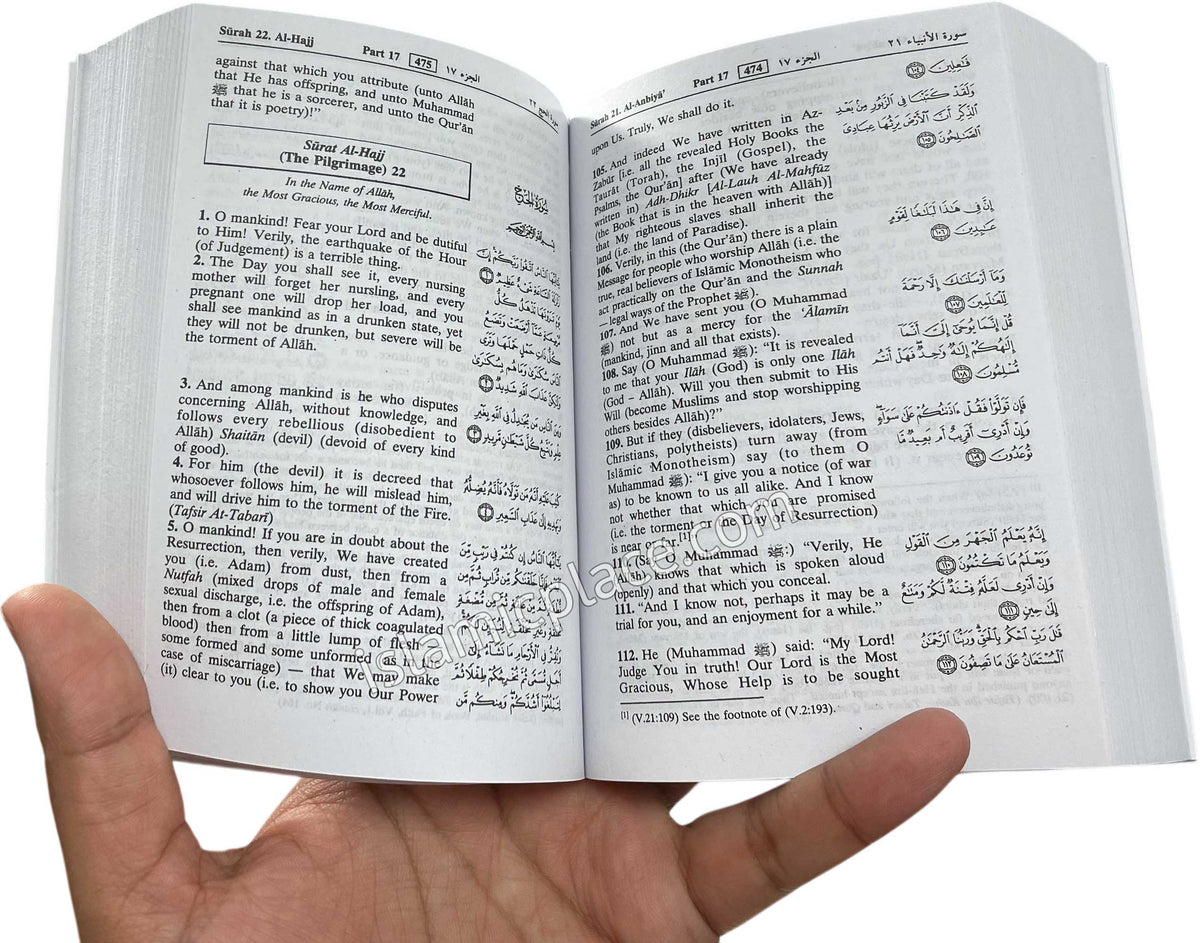 Sūrah 21. Al-Anbiyā’
Part 17
474
الجزء ١٧
سورة الأنبياء ٢١
upon Us. Truly, We shall do it.
105. And indeed We have written in Az-
Zabūr [i.e. all the revealed Holy Books the
Taurāt (Torah), the Injīl (Gospel), the
Psalms, the Qur’ān] after (We have already
written in) Adh-Dhikr [Al-Lauh Al-Mahfūz
(the Book that is in the heaven with Allāh)]
that My righteous slaves shall inherit the
land (i.e. the land of Paradise).
106. Verily, in this (the Qur’ān) there is a plain
Message for people who worship Allāh (i.e. the
true, real believers of Islāmic Monotheism who
act practically on the Qur’ān and the Sunnah
— legal ways of the Prophet ﷺ).
107. And We have sent you (O Muhammad
ﷺ) not but as a mercy for the ‘Ālamīn
(mankind, jinn and all that exists).
108. Say (O Muhammad ﷺ): “It is revealed
to me that your Ilāh (God) is only one Ilāh
(God – Allāh). Will you then submit to His
Will (become Muslims and stop worshipping
others besides Allāh)?”
109. But if they (disbelievers, idolaters, Jews,
Christians, polytheists) turn away (from
Islāmic Monotheism) say (to them O
Muhammad ﷺ): “I give you a notice (of war
as) to be known to us all alike. And I know
not whether that which you are promised
(i.e. the torment or the Day of Resurrection)
is near or far.[1]
(Say O Muhammad ﷺ:) “Verily, He
(Allāh) knows that which is spoken aloud
(openly) and that which you conceal.
111. “And I know not, perhaps it may be a
trial for you, and an enjoyment for a while.”
112. He (Muhammad ﷺ) said: “My Lord!
Judge You in truth! Our Lord is the Most
Gracious, Whose Help is to be sought
فَٰعِلِينَ ١٠٤
وَلَقَدْ كَتَبْنَا فِى ٱلزَّبُورِ مِنۢ بَعْدِ
ٱلذِّكْرِ أَنَّ ٱلْأَرْضَ يَرِثُهَا عِبَادِىَ
ٱلصَّٰلِحُونَ ١٠٥
إِنَّ فِى هَٰذَا لَبَلَٰغًا لِّقَوْمٍ
عَٰبِدِينَ ١٠٦
وَمَآ أَرْسَلْنَٰكَ إِلَّا رَحْمَةً
لِّلْعَٰلَمِينَ ١٠٧
قُلْ إِنَّمَا يُوحَىٰٓ إِلَىَّ أَنَّمَآ
إِلَٰهُكُمْ إِلَٰهٌ وَٰحِدٌ فَهَلْ أَنتُم
مُّسْلِمُونَ ١٠٨
فَإِن تَوَلَّوْا۟ فَقُلْ ءَاذَنتُكُمْ عَلَىٰ سَوَآءٍ
وَإِنْ أَدْرِىٓ أَقَرِيبٌ أَم بَعِيدٌ مَّا
تُوعَدُونَ ١٠٩
إِنَّهُۥ يَعْلَمُ ٱلْجَهْرَ مِنَ ٱلْقَوْلِ
وَيَعْلَمُ مَا تَكْتُمُونَ ١١٠
وَإِنْ أَدْرِى لَعَلَّهُۥ فِتْنَةٌ لَّكُمْ وَمَتَٰعٌ
إِلَىٰ حِينٍ ١١١
قَٰلَ رَبِّ ٱحْكُم بِٱلْحَقِّ وَرَبُّنَا ٱلرَّحْمَٰنُ
ٱلْمُسْتَعَانُ عَلَىٰ مَا تَصِفُونَ ١١٢
[1] (V.21:109) See the footnote of (V.2:193).
Sūrah 22. Al-Hajj
Part 17
475
الجزء ١٧
سورة الحج ٢٢
against that which you attribute (unto Allāh
that He has offspring, and unto Muhammad
ﷺ that he is a sorcerer, and unto the Qur’ān
that it is poetry)!”
Sūrat Al-Hajj
(The Pilgrimage) 22
In the Name of Allāh,
the Most Gracious, the Most Merciful.
1. O mankind! Fear your Lord and be dutiful
to Him! Verily, the earthquake of the Hour
(of Judgement) is a terrible thing.
2. The Day you shall see it, every nursing
mother will forget her nursling, and every
pregnant one will drop her load, and you
shall see mankind as in a drunken state, yet
they will not be drunken, but severe will be
the torment of Allāh.
3. And among mankind is he who disputes
concerning Allāh, without knowledge, and
follows every rebellious (disobedient to
Allāh) Shaitān (devil) (devoid of every kind
of good).
4. For him (the devil) it is decreed that
whosoever follows him, he will mislead him,
and will drive him to the torment of the Fire.
(Tafsir At-Tabarī)
5. O mankind! If you are in doubt about the
Resurrection, then verily, We have created
you (i.e. Adam) from dust, then from a
Nutfah (mixed drops of male and female
sexual discharge, i.e. the offspring of Adam),
then from a clot (a piece of thick coagulated
blood) then from a little lump of flesh —
some formed and some unformed (as in the
case of miscarriage) — that We may make
(it) clear to you (i.e. to show you Our Power
سُورَةُ الحَجِّ
بِسْمِ ٱللَّهِ ٱلرَّحْمَٰنِ ٱلرَّحِيمِ
يَٰٓأَيُّهَا ٱلنَّاسُ ٱتَّقُوا۟ رَبَّكُمْ إِنَّ
زَلْزَلَةَ ٱلسَّاعَةِ شَىْءٌ عَظِيمٌ ١
يَوْمَ تَرَوْنَهَا تَذْهَلُ كُلُّ
مُرْضِعَةٍ عَمَّآ أَرْضَعَتْ وَتَضَعُ
كُلُّ ذَاتِ حَمْلٍ حَمْلَهَا وَتَرَى
ٱلنَّاسَ سُكَٰرَىٰ وَمَا هُم بِسُكَٰرَىٰ
وَلَٰكِنَّ عَذَابَ ٱللَّهِ شَدِيدٌ ٢
وَمِنَ ٱلنَّاسِ مَن يُجَٰدِلُ فِى ٱللَّهِ بِغَيْرِ
عِلْمٍ وَيَتَّبِعُ كُلَّ شَيْطَٰنٍ مَّرِيدٍ ٣
كُتِبَ عَلَيْهِ أَنَّهُۥ مَن تَوَلَّاهُ فَأَنَّهُۥ يُضِلُّهُۥ
وَيَهْدِيهِ إِلَىٰ عَذَابِ ٱلسَّعِيرِ ٤
يَٰٓأَيُّهَا ٱلنَّاسُ إِن كُنتُمْ فِى رَيْبٍ مِّنَ
islamicplace.com